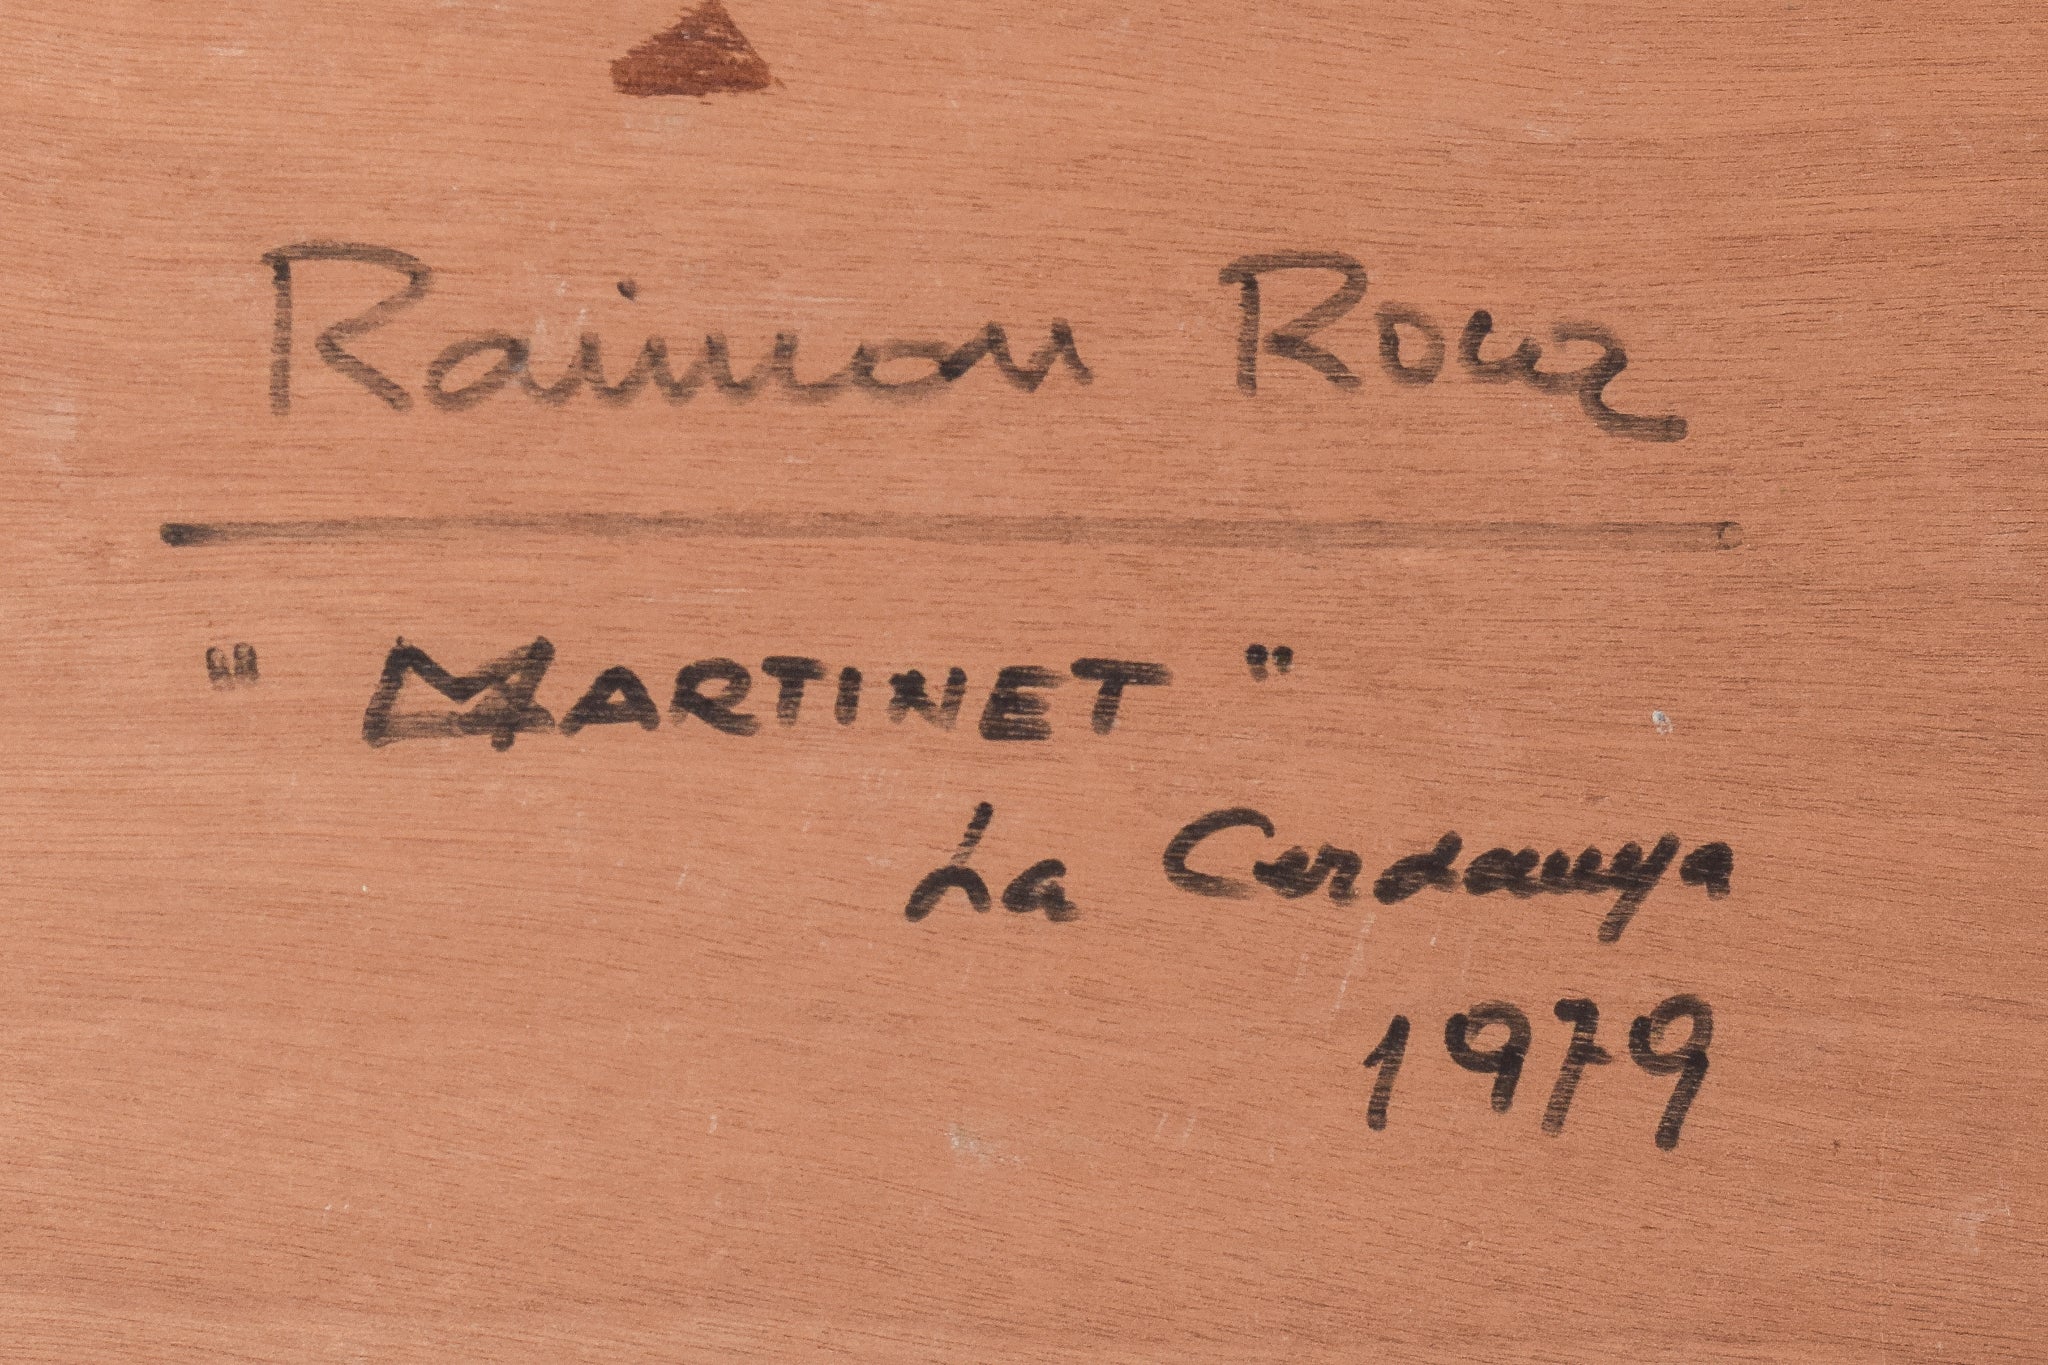 Raimon Roca
" MARTINET "
La Cerdanya
1979